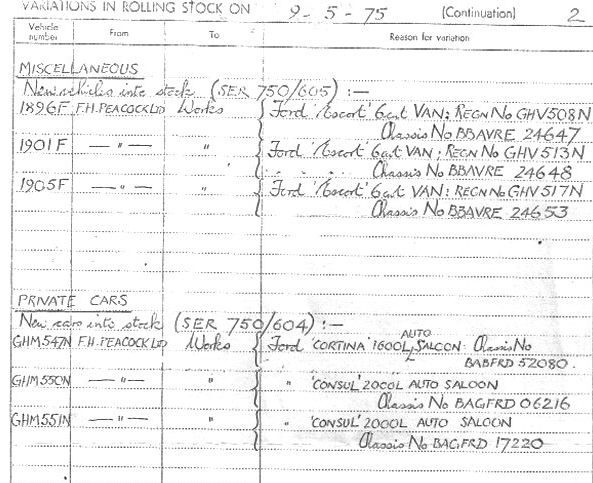 VARIATIONS IN ROLLING STOCK ON 9 - 5 - 75 (Continuation) 2
Vehicle number From To Reason for variation
MISCELLANEOUS
New vehicles into stock (SER 750/605) :—
1896F F.H. PEACOCK LTD Works Ford 'Escort' 6cwt VAN: REGN No GHV508N
Chassis No BBAVRE 24647
1901F — " — " Ford 'Escort' 6cwt VAN: REGN No GHV 513N
Chassis No BBAVRE 24648
1905F — " — " Ford 'Escort' 6cwt VAN: REGN No GHV 517N
Chassis No BBAVRE 24653
PRIVATE CARS
New cars into stock (SER 750/604) :—
AUTO
GHM547N F.H. PEACOCK LTD Works Ford 'CORTINA' 1600L SALOON Chassis No
BABFRD 52080.
GHM550N — " — " " 'CONSUL' 2000L AUTO SALOON
Chassis No BAGFRD 06216
GHM551N — " — " " 'CONSUL' 2000L AUTO SALOON
Chassis No BAGFRD 17220